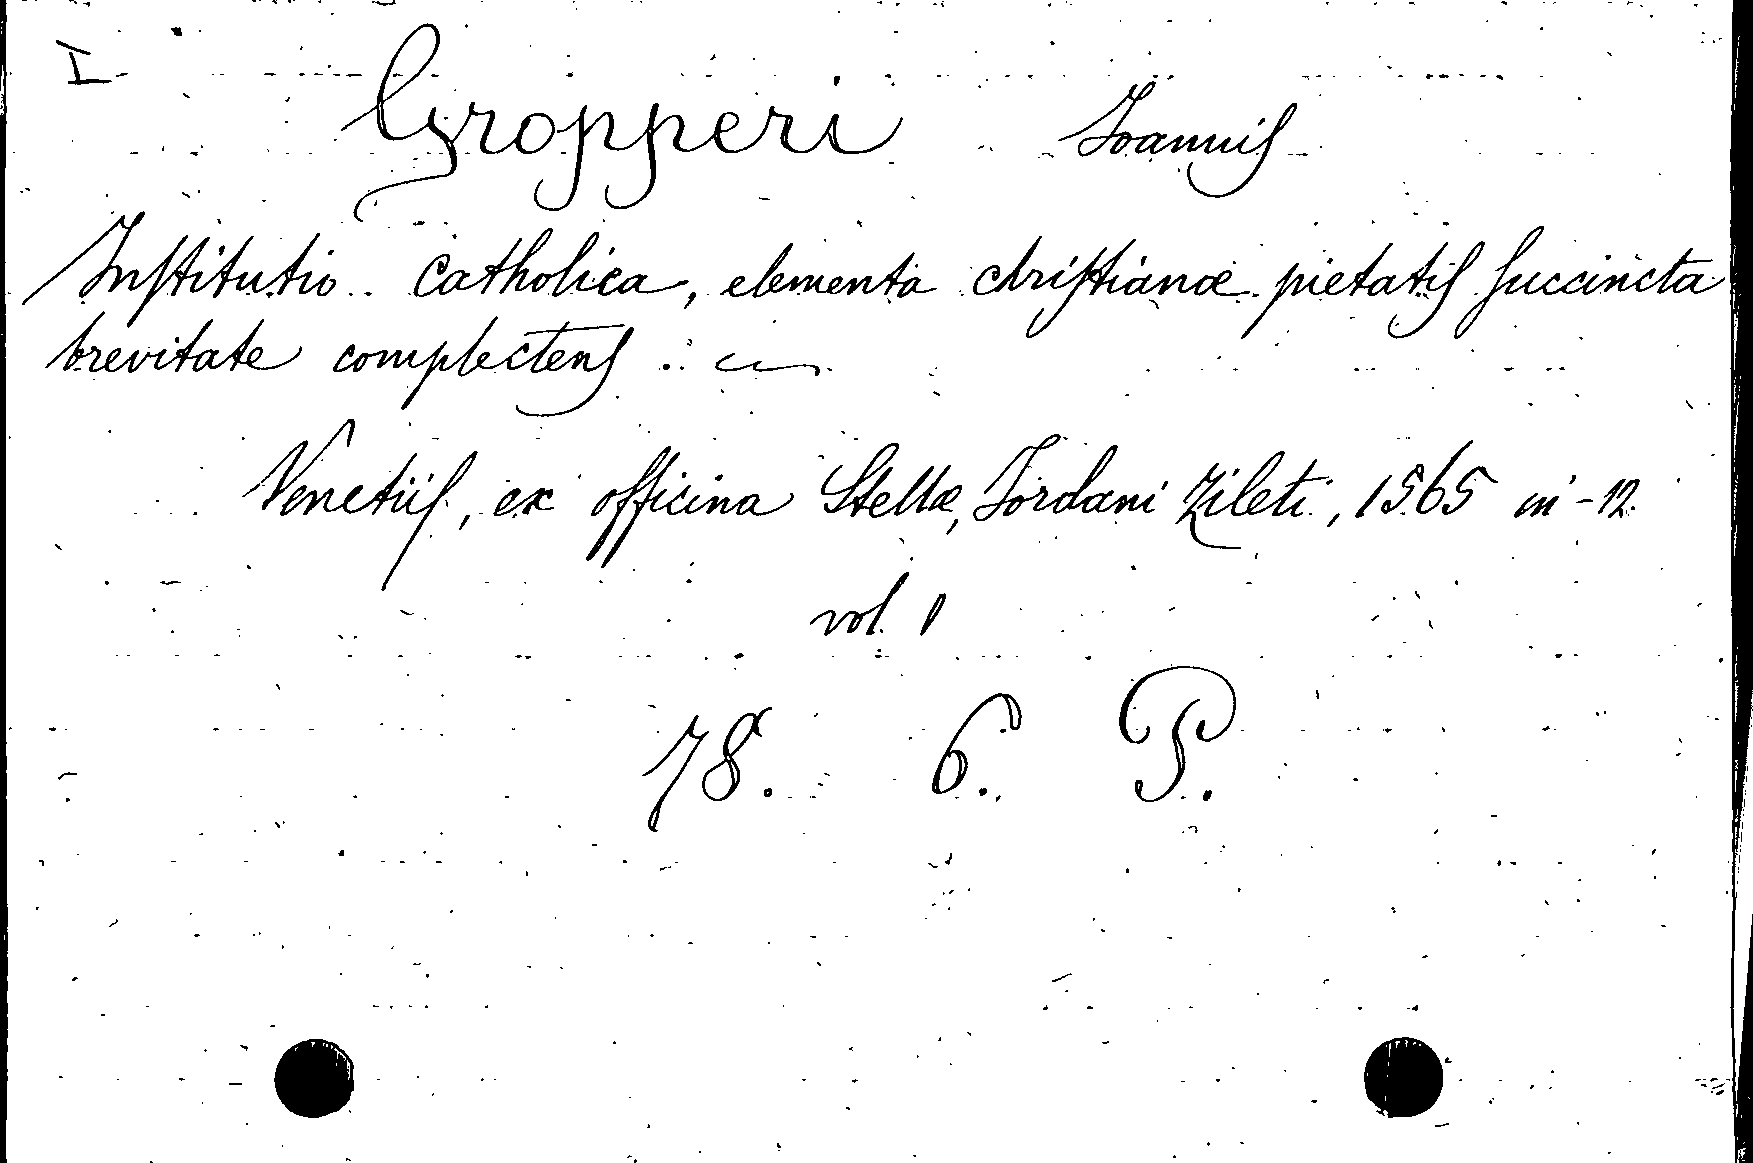 I
Gropperi Ioannis
Institutio Catholica, elementa christianæ pietatis succincta
brevitate complectens.
Venetiis, ex officina Stellæ, Jordani Zileti, 1565 in-12.
vol. 1
78. 6. P.